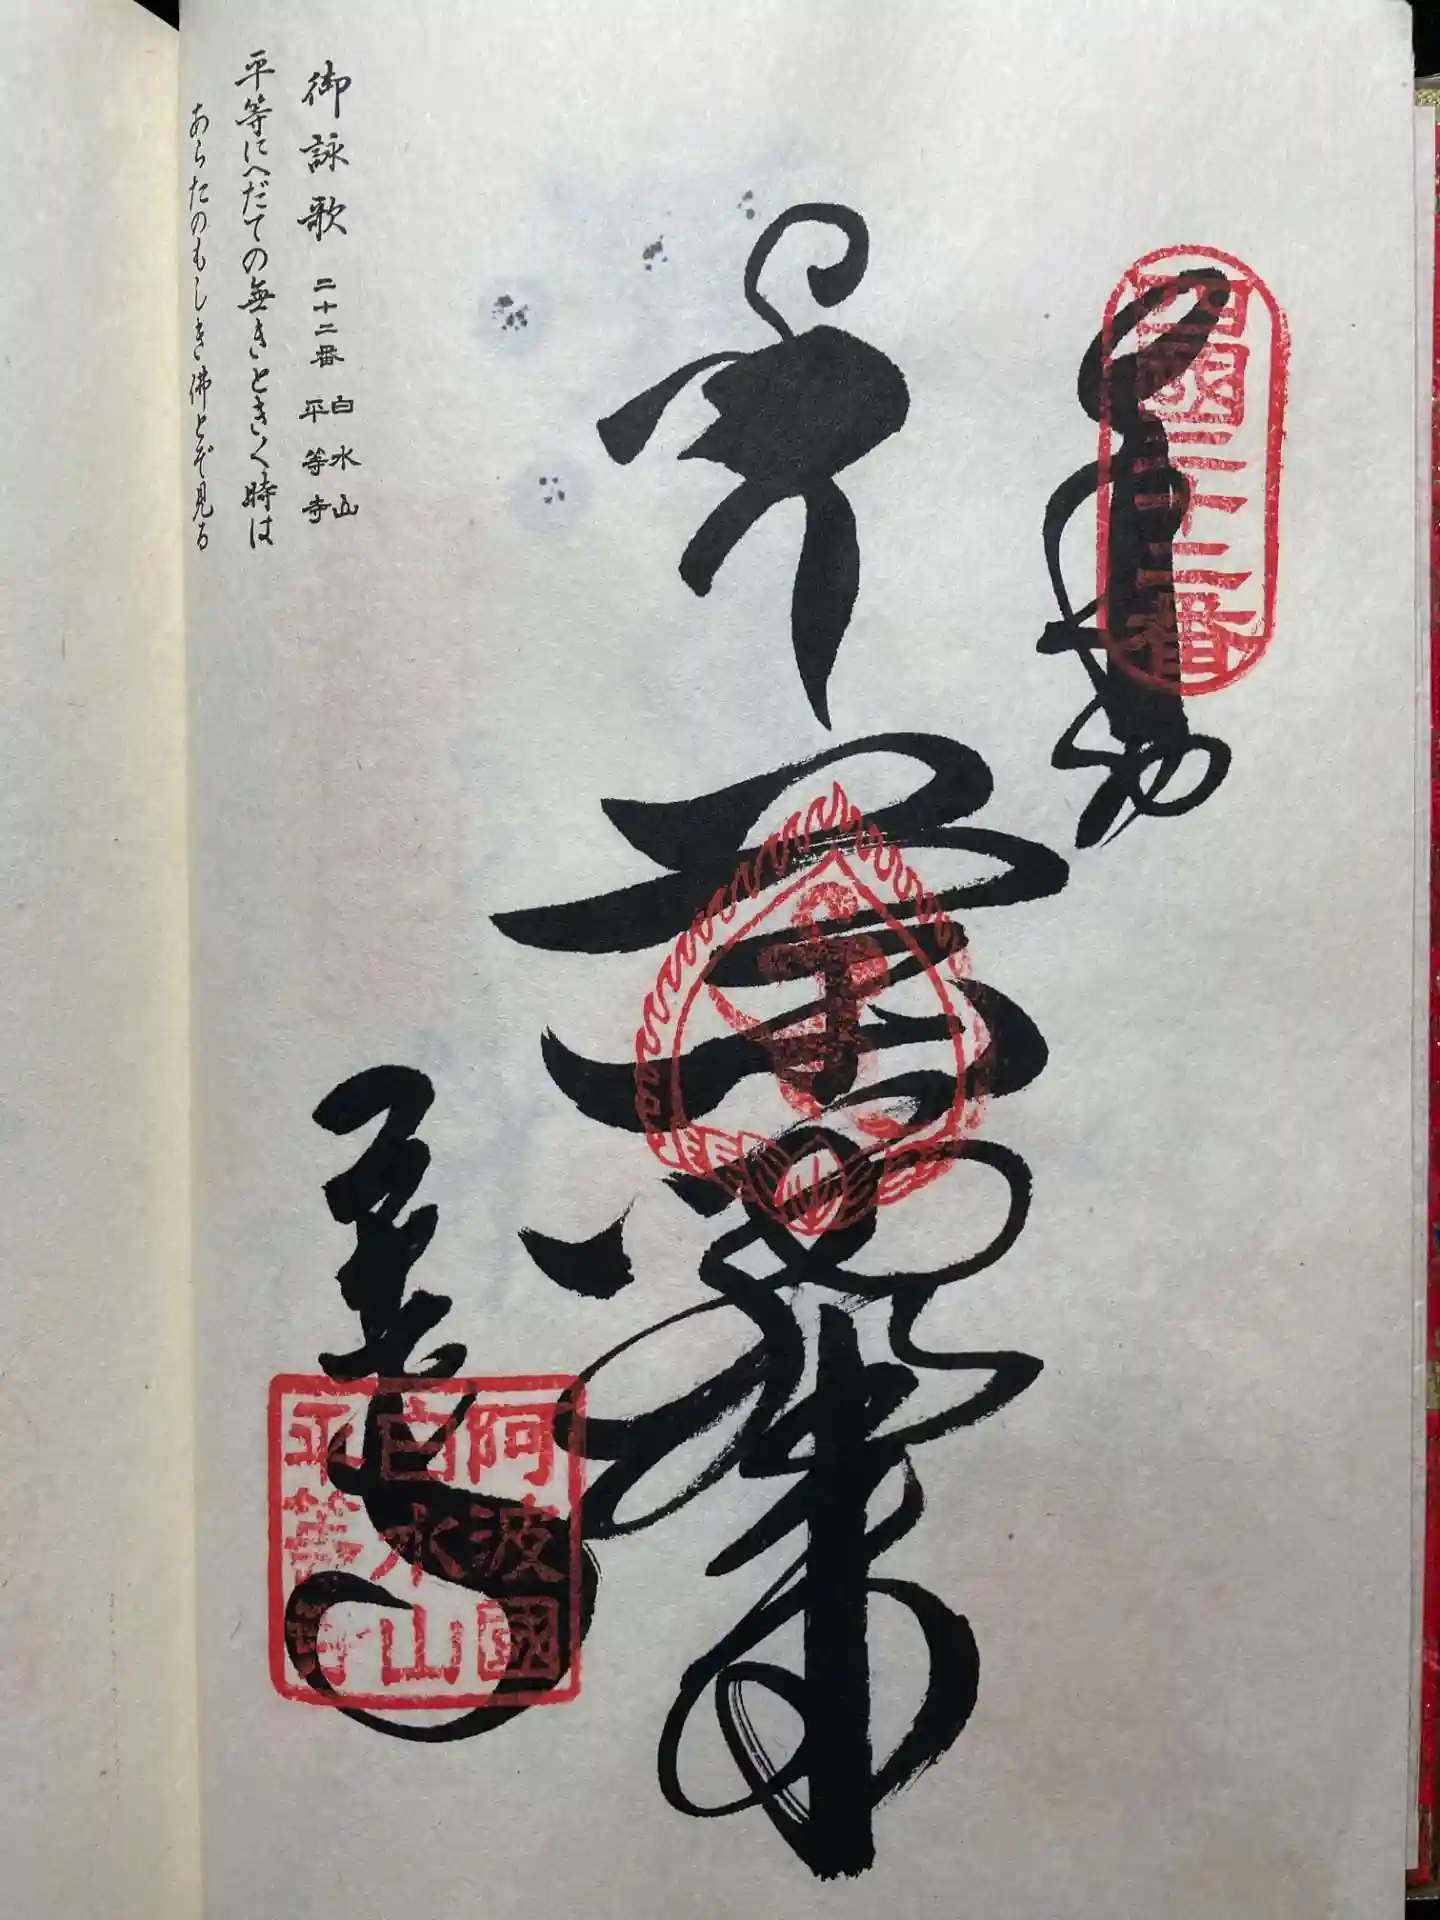 四國二十二番
奉納
薬師
阿波國
白水山
平等寺
御詠歌 二十二番 白水山 平等寺
平等にへだての無きときく時は
あらたのもしき佛とぞ見る